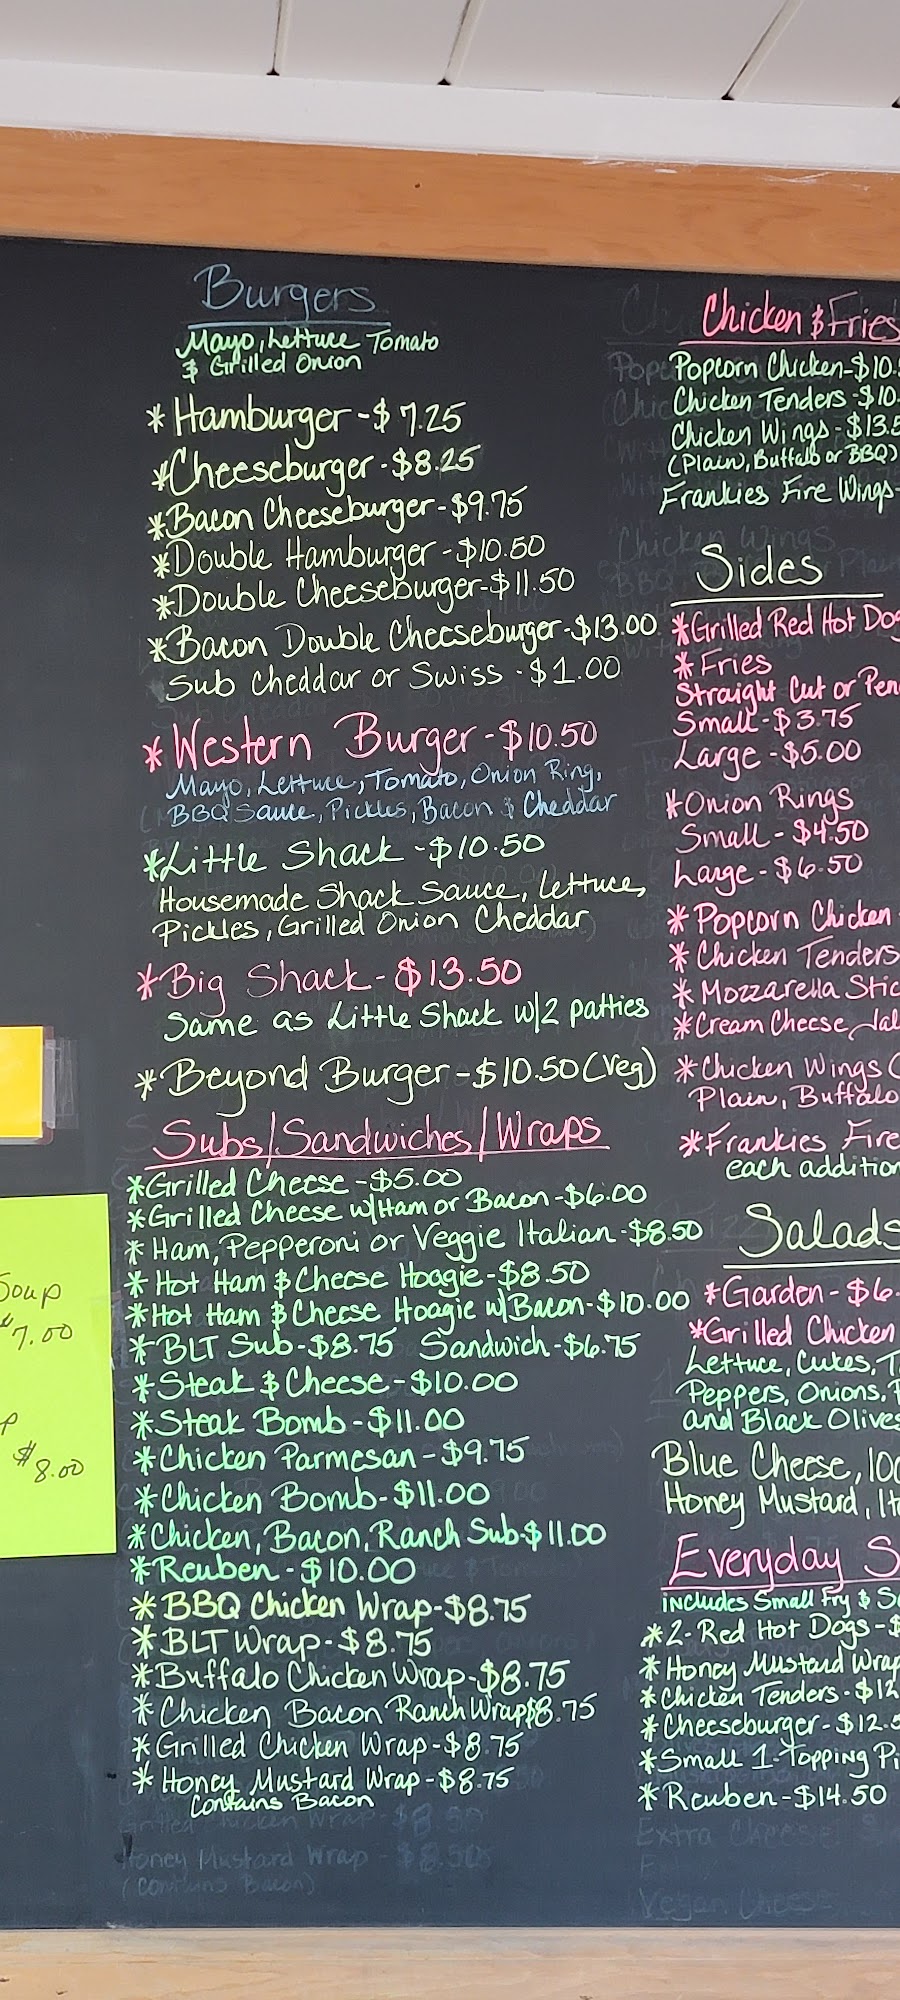 Burgers
Mayo, Lettuce Tomato
& Grilled Onion
*Hamburger - $7.25
*Cheeseburger - $8.25
*Bacon Cheeseburger - $9.75
*Double Hamburger - $10.50
*Double Cheeseburger - $11.50
*Bacon Double Cheeseburger - $13.00
Sub Cheddar or Swiss - $1.00
*Western Burger - $10.50
Mayo, Lettuce, Tomato, Onion Ring,
BBQ Sauce, Pickles, Bacon & Cheddar
*Little Shack - $10.50
Housemade Shack Sauce, Lettuce,
Pickles, Grilled Onion Cheddar
*Big Shack - $13.50
Same as Little Shack w/2 patties
*Beyond Burger - $10.50 (Veg)
Subs/Sandwiches/Wraps
*Grilled Cheese - $5.00
*Grilled Cheese w/Ham or Bacon - $6.00
*Ham, Pepperoni or Veggie Italian - $8.50
*Hot Ham & Cheese Hoagie - $8.50
*Hot Ham & Cheese Hoagie w/Bacon - $10.00
*BLT Sub - $8.75 Sandwich - $6.75
*Steak & Cheese - $10.00
*Steak Bomb - $11.00
*Chicken Parmesan - $9.75
*Chicken Bomb - $11.00
*Chicken, Bacon, Ranch Sub - $11.00
*Reuben - $10.00
*BBQ Chicken Wrap - $8.75
*BLT Wrap - $8.75
*Buffalo Chicken Wrap - $8.75
*Chicken Bacon Ranch Wrap $8.75
*Grilled Chicken Wrap - $8.75
*Honey Mustard Wrap - $8.75
Contains Bacon
Grilled Chicken Wrap - $8.50
Honey Mustard Wrap - $8.50
(Contains Bacon)
Chicken & Fries
Popcorn Chicken - $10.
Chicken Tenders - $10.
Chicken Wings - $13.5
(Plain, Buffalo or BBQ)
Frankies Fire Wings -
Chicken Wings
Sides
*Grilled Red Hot Dog
*Fries
Straight Cut or
Small - $3.75
Large - $5.00
*Onion Rings
Small - $4.50
Large - $6.50
*Popcorn Chicken -
*Chicken Tenders
*Mozzarella
*Cream Cheese
*Chicken Wings (
Plain, Buffalo
*Frankies Fire
each
Salads
*Garden - $6.
*Grilled Chicken
Lettuce, Cukes,
Peppers, Onions,
and Black Olives
Blue Cheese,
Honey Mustard,
Everyday S
includes Small Fry &
*2 - Red Hot Dogs - $
*Honey Mustard Wrap
*Chicken Tenders - $12
*Cheeseburger - $12.
*Small 1-Topping
*Reuben - $14.50
Extra Cheese
Vegan Cheese
Soup
$7.00
$8.00